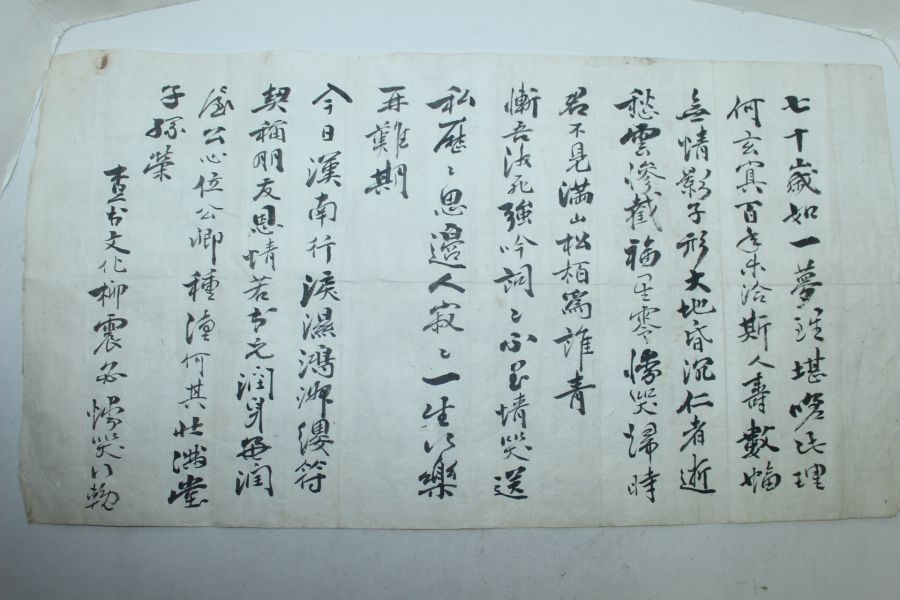 七十歲如一夢 堪嗟此理
何玄冥百年未洽斯人壽數
無情影子形大地昏沉仁者逝
愁雲滲截福星零慟哭歸時
君不見滿山松栢爲誰青
慚吾法死強吟詞〻不 情哭送
私歷〻思邊人寂〻一生行樂
再難期
今日漢南行淚濕鴻 纓符
契稱朋友恩情若 兄潤身再潤
屋公心位公卿種 何其壯滿堂
子孫榮
查 文化柳震 慟哭